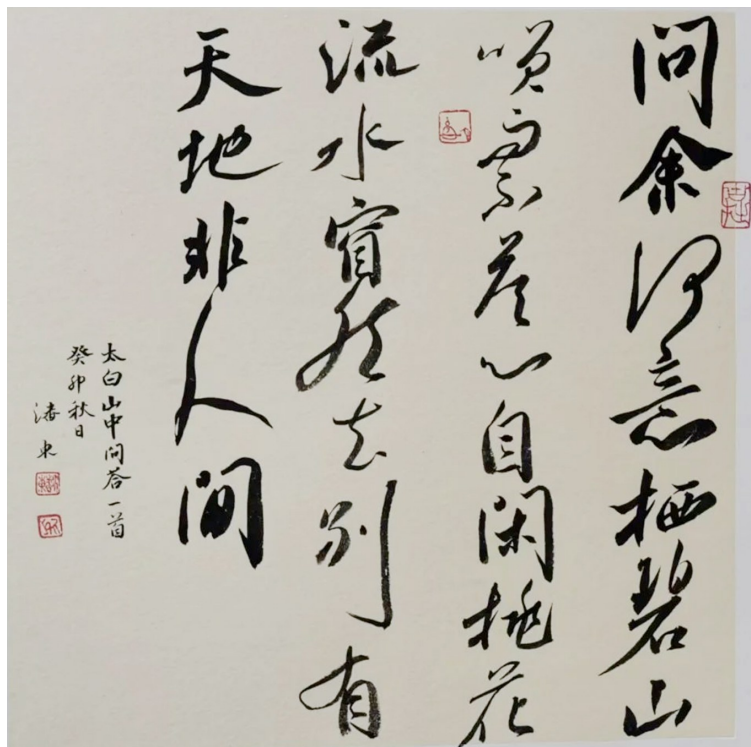 问余何意栖碧山
笑而不答心自闲桃花
流水窅然去别有
天地非人间
太白山中问答一首
癸卯秋日
潘东